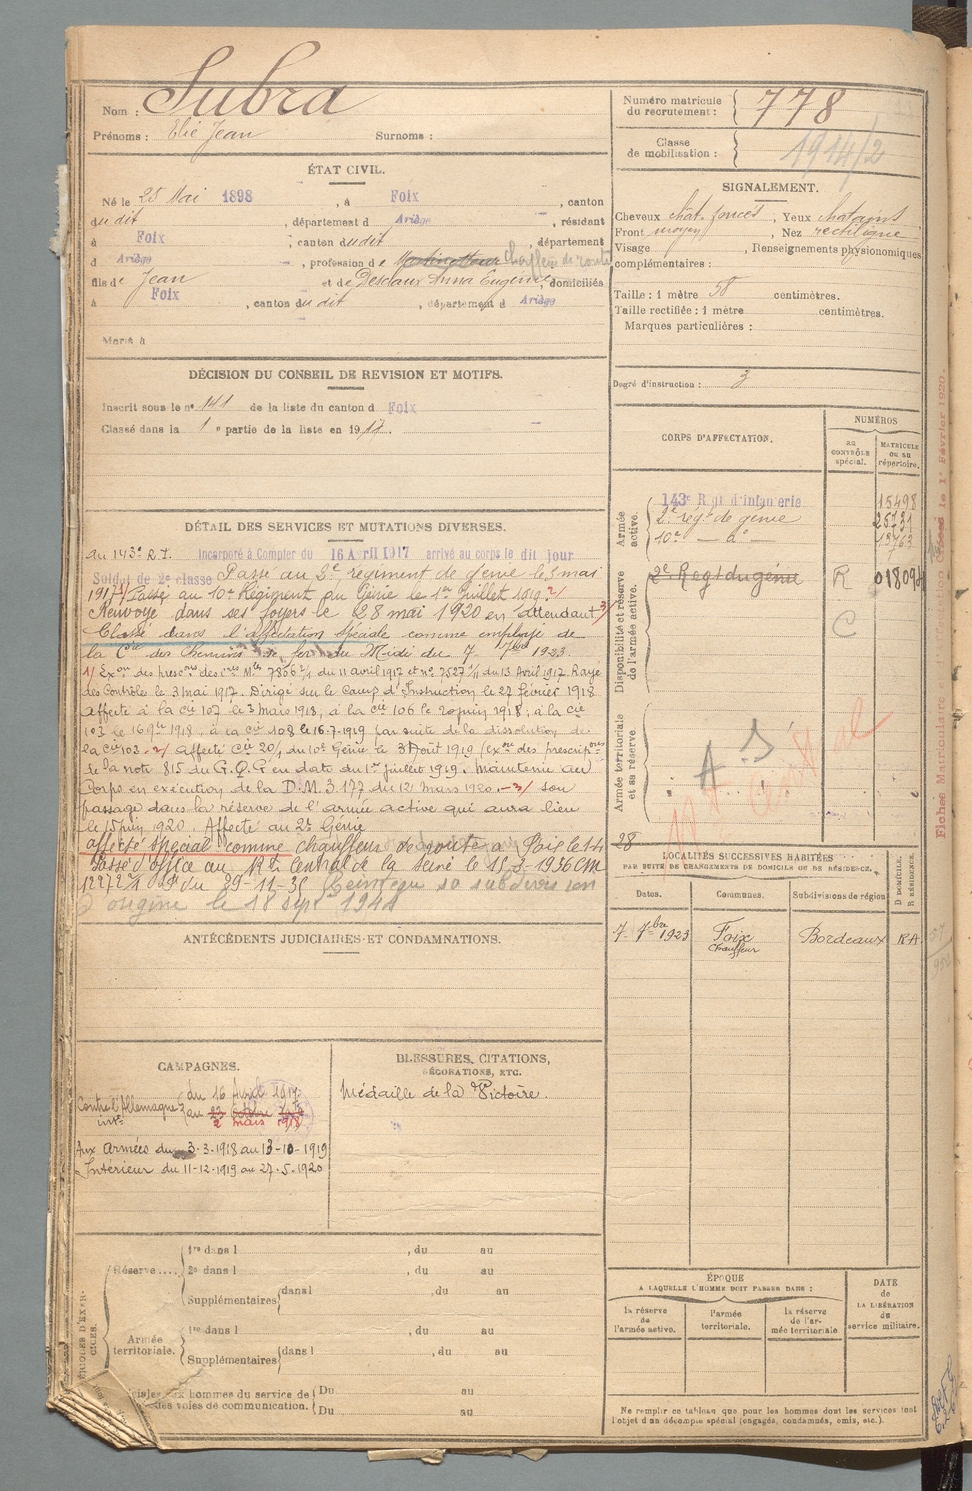 Nom : Subra
Prénoms : Elie Jean Surnoms :
Numéro matricule du recrutement : 778
Classe de mobilisation : 1914/2
ÉTAT CIVIL.
Né le 28 Mai 1898, à Foix, canton
dudit, département d Ariège, résidant
à Foix, canton dudit, département
d Ariège, profession de chauffeur de route
fils de Jean et de Desclaux Anna Eugénie, domiciliés
à Foix, canton dudit, département d Ariège
Marié à
SIGNALEMENT.
Cheveux chat. foncés, Yeux chatains
Front moyen, Nez rectiligne
Visage , Renseignements physionomiques
complémentaires :
Taille : 1 mètre 58 centimètres.
Taille rectifiée : 1 mètre centimètres.
Marques particulières :
Degré d'instruction : 3
DÉCISION DU CONSEIL DE REVISION ET MOTIFS.
Inscrit sous le n° 141 de la liste du canton d Foix
Classé dans la 1e partie de la liste en 1917.
CORPS D'AFFECTATION.
NUMÉROS
au CONTRÔLE spécial.
MATRICULE ou au répertoire.
Armée active.
143e Rgt d'infanterie 15498
2e régt de génie 25731
10e — d° —
Disponibilité et réserve de l'armée active.
2e Regt du génie R
C
Armée territoriale et sa réserve.
A S
Rt Central
28
DÉTAIL DES SERVICES ET MUTATIONS DIVERSES.
Au 143e R.I. Incorporé à Compter du 16 Avril 1917 arrivé au corps le dit jour
Soldat de 2e classe Passé au 2e régiment de génie le 3 mai
1917 1/ Passé au 10e Régiment du Génie le 1er Juillet 1919 2/
Renvoyé dans ses foyers le 28 mai 1920 en attendant 3/
Classé dans l'affectation spéciale comme employé de
la Cie des Chemins de fer du Midi du 7 7bre 1923.
1/ Exon des presons des cires Mles 7856 2/1 du 11 avril 1917 et n° 7527 1/1 du 13 Avril 1917. Rayé
des Contrôles le 3 mai 1917. Dirigé sur le Camp d'Instruction le 27 février 1918
Affecté à la Cie 107 le 3 Mars 1918, à la Cie 106 le 20 juin 1918, à la Cie
103 le 16 9bre 1918, à la Cie 108 le 16-7-1919 par suite de la dissolution de
la Cie 103. 2/ Affecté Cie 20/ du 10e Génie le 3 Août 1919 (exon des prescripons
de la note 815 du G.Q.G en date du 1er juillet 1919. Maintenu au
Corps en exécution de la D.M. 3.177 du 12 Mars 1920. — 3/ son
passage dans la réserve de l'armée active qui aura lieu
le 15 juin 1920. Affecté au 2e Génie
affecté spécial comme chauffeur de route à Foix le 14
Passé d'office au Rt Central de la Seine le 15-3-1936 CM
du 29-11-35 Réintégré sa subdivision
d'origine le 18 sept 1941
LOCALITÉS SUCCESSIVES HABITÉES
PAR SUITE DE CHANGEMENTS DE DOMICILE OU DE RÉSIDENCE.
Dates. Communes. Subdivisions de région D DOMICILE. R RÉSIDENCE.
7- 7bre 1923 Foix chauffeur Bordeaux RA
ANTÉCÉDENTS JUDICIAIRES ET CONDAMNATIONS.
CAMPAGNES.
Contre l'Allemagne du 16 Avril 1917
intr au 23 Octobre 1919
2 mars 1918
Aux Armées du 3-3-1918 au 13-10-1919
Intérieur du 11-12-1919 au 27-5-1920
BLESSURES, CITATIONS,
DÉCORATIONS, ETC.
Médaille de la Victoire.
PÉRIODES D'EXERCICES.
Réserve....
1re dans l , du au
2e dans l , du au
Supplémentaires dans l , du au
Armée territoriale.
1re dans l , du au
Supplémentaires dans l , du au
aux hommes du service des voies de communication.
Du au
Du au
ÉPOQUE
A LAQUELLE L'HOMME DOIT PASSER DANS :
la réserve de l'armée active.
l'armée territoriale.
la réserve de l'armée territoriale
DATE DE LA LIBÉRATION du service militaire.
Ne remplir ce tableau que pour les hommes dont les services font
l'objet d'un décompte spécial (engagés, condamnés, omis, etc.).